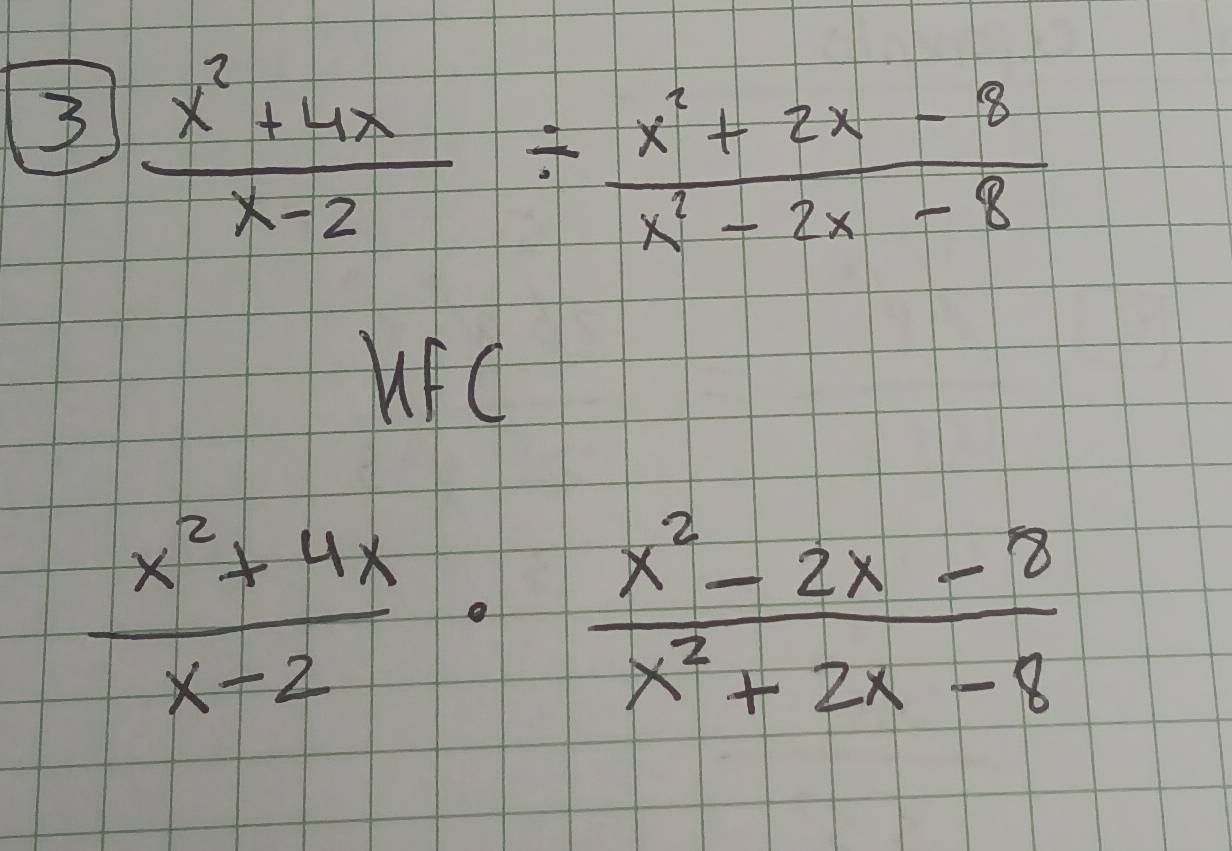 3 (x² + 4x)/(x - 2) ÷ (x² + 2x - 8)/(x² - 2x - 8)
KFC
(x² + 4x)/(x - 2) · (x² - 2x - 8)/(x² + 2x - 8)